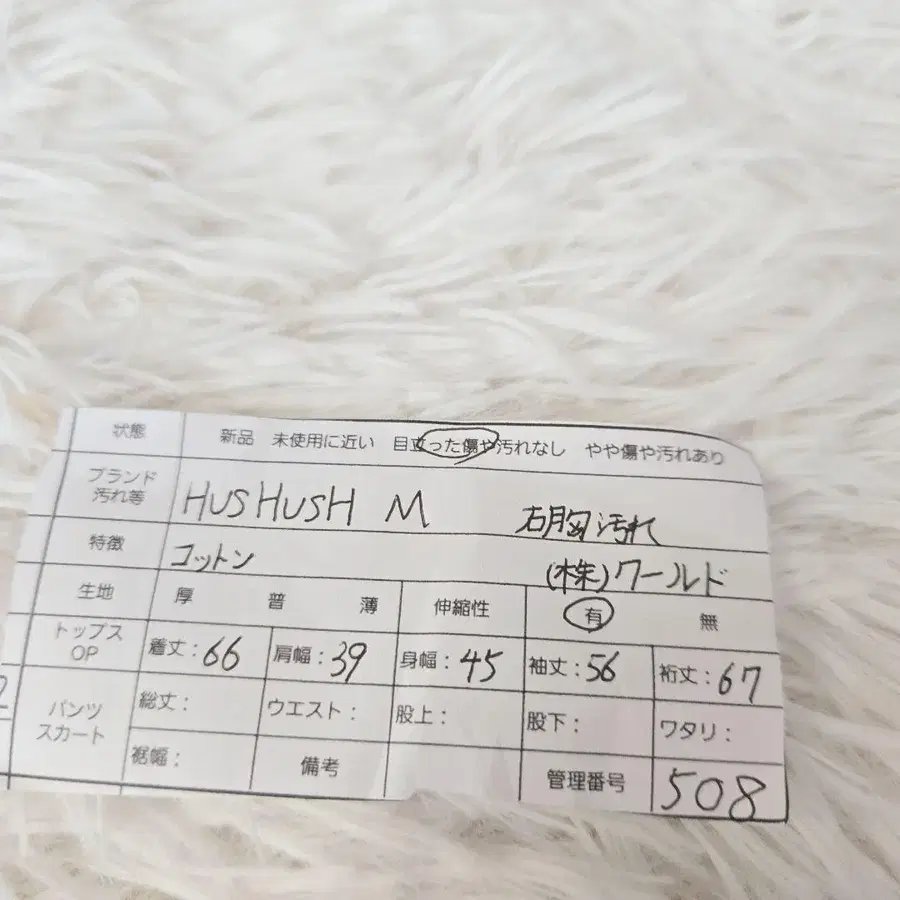 状態 新品 未使用に近い 目立った傷や汚れなし やや傷や汚れあり
ブランド
汚れ等 HUSHUSH M 右胸汚れ
特徴 コットン (株)ワールド
生地 厚 普 薄 伸縮性 有 無
トップス
OP 着丈:66 肩幅:39 身幅:45 袖丈:56 裄丈:67
パンツ
スカート 総丈: ウエスト: 股上: 股下: ワタリ:
裾幅: 備考 管理番号 508